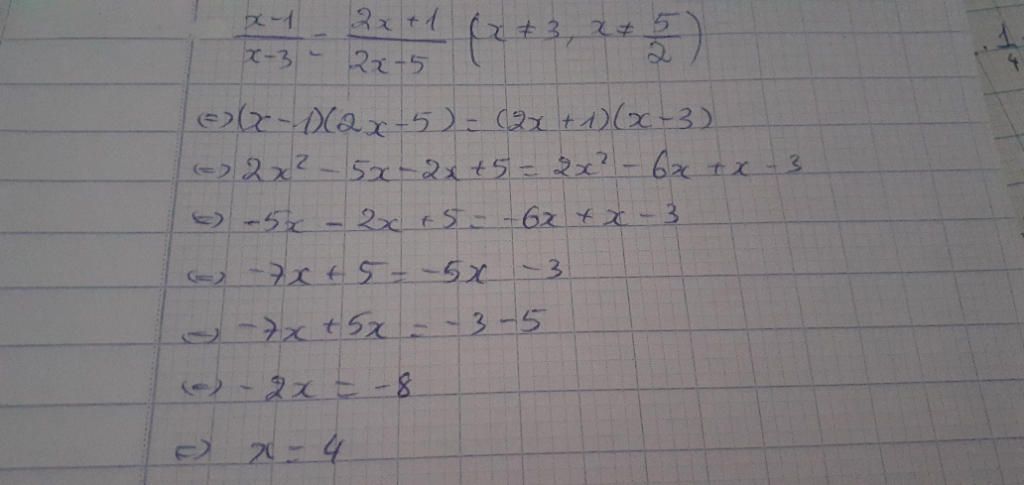 \frac{x-1}{x-3} = \frac{2x+1}{2x-5} (x ≠ 3, x ≠ \frac{5}{2})
⇔ (x-1)(2x-5) = (2x+1)(x-3)
⇔ 2x² - 5x - 2x + 5 = 2x² - 6x + x - 3
⇔ -5x - 2x + 5 = -6x + x - 3
⇔ -7x + 5 = -5x - 3
⇔ -7x + 5x = -3 - 5
⇔ -2x = -8
⇔ x = 4
\frac{1}{4}